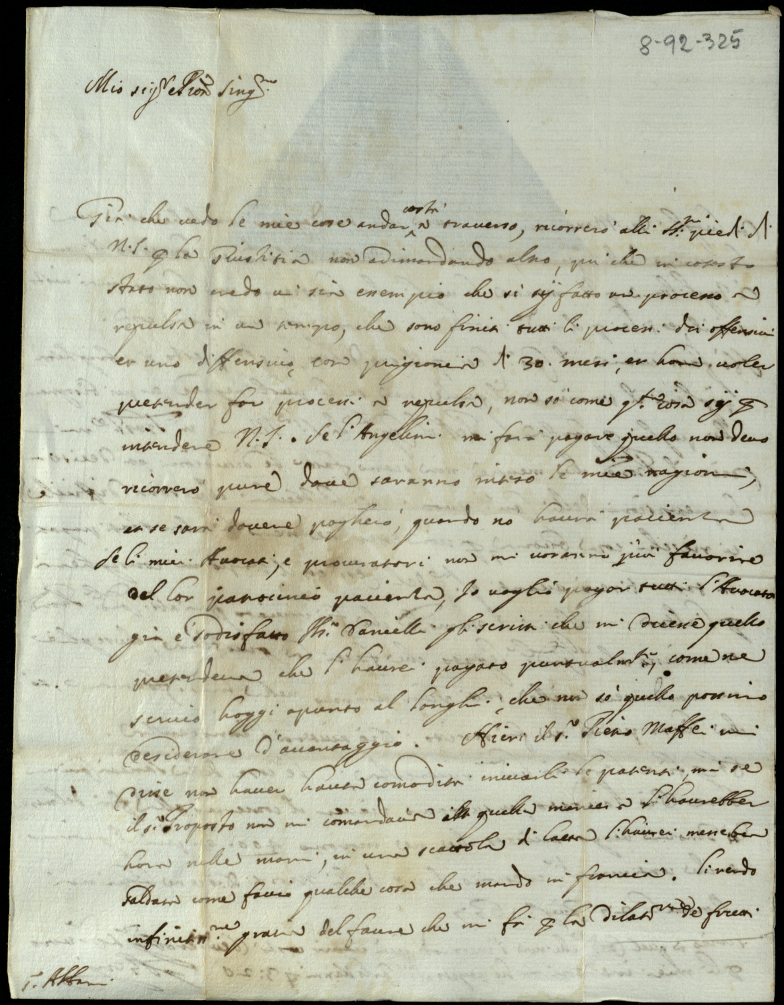 8-92-325
Mio sig.r e Pron Sing.mo
Già che vedo le mie cose andar costì a traverso, ricorrerò alli S.mi piedi di
N.S. p la Giustitia non adimandando altro, più che in cotesto
stato non credo vi sia esempio che si sij fatto un processo a
repulsa in un tempo, che sono finiti tutti li processi dei offensivi
et uno diffensivo, con prigionia di 30. mesi, et hora voler
pretender far processi a repulsa, non sò come q.ta cosa sij p
intendere N.S. Se l'Angelini mi farà pagare quello non devo
ricorrerò pure dove saranno intese le mie ragioni,
et se sarà dovere pagherò, quando no haurà patienza
Se li miei Avocati, e procuratori non mi voranno più favorire
del lor patrocinio pacienza, Io voglio pagar tutti l'Avocato
già è sodisfatto Il S.r Danielli gli scrissi che mi dicesse quello
pretendeva che l'haurei pagato puntualm.te, come ne
scrivo hoggi apunto al Longhi, che non sò quello possino
desiderare d'avantaggio. Hieri il S.r Pietro Maffei mi
disse non haver hauta comodità inviarli le patenti, mà se
il S.r Proposto non mi comandava quella maniera l'haurebber
hora nelle mani, in una scattola di latta l'haurei messe ben
saldata come faccio qualche cosa che mando in francia. Li rendo
infinitiss.me gratie del favore che mi fà p la dilat.ne de frutti
S. Abb.